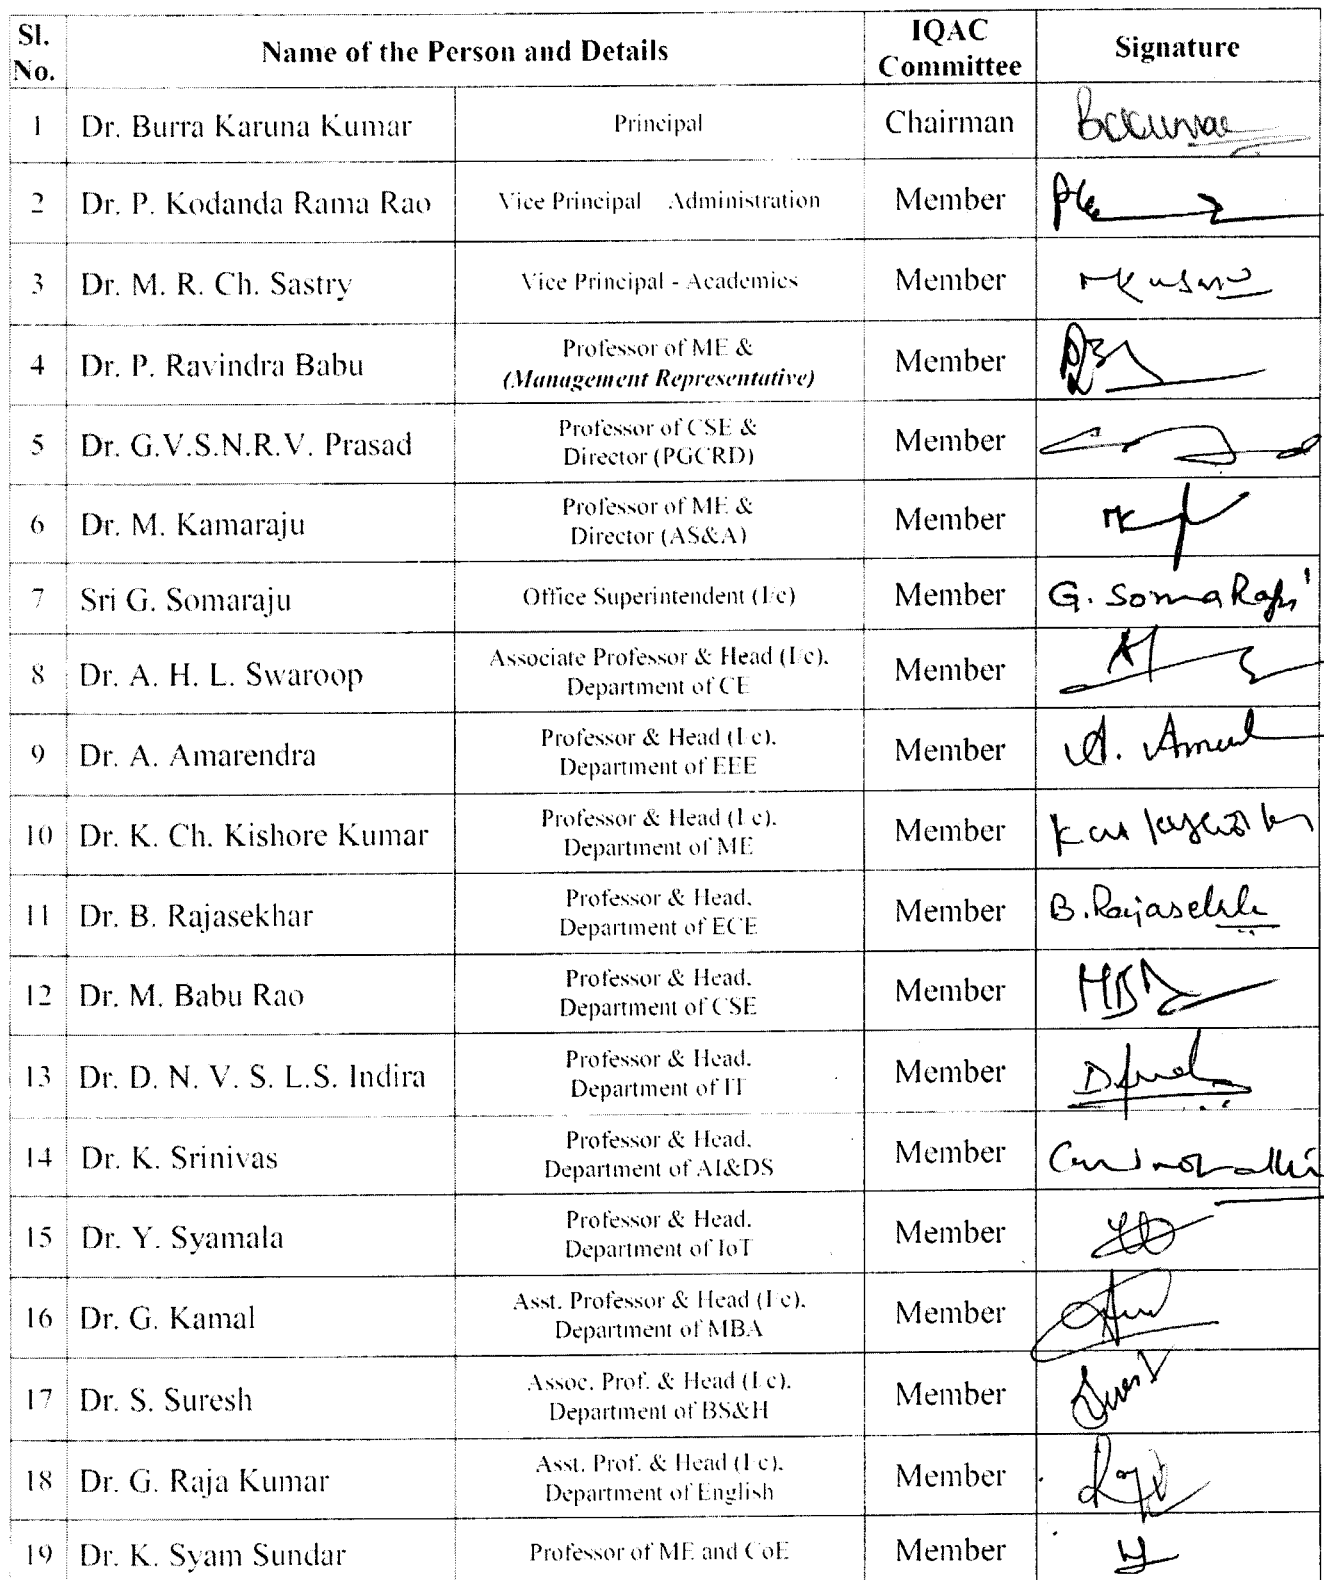 Sl. No. Name of the Person and Details IQAC Committee Signature
1 Dr. Burra Karuna Kumar Principal Chairman
2 Dr. P. Kodanda Rama Rao Vice Principal Administration Member
3 Dr. M. R. Ch. Sastry Vice Principal - Academics Member
4 Dr. P. Ravindra Babu Professor of ME &
(Management Representative) Member
5 Dr. G.V.S.N.R.V. Prasad Professor of CSE &
Director (PGCRD) Member
6 Dr. M. Kamaraju Professor of ME &
Director (AS&A) Member
7 Sri G. Somaraju Office Superintendent (I/c) Member G. SomaRaju
8 Dr. A. H. L. Swaroop Associate Professor & Head (I/c),
Department of CE Member
9 Dr. A. Amarendra Professor & Head (I/c),
Department of EEE Member
10 Dr. K. Ch. Kishore Kumar Professor & Head (I/c),
Department of ME Member
11 Dr. B. Rajasekhar Professor & Head,
Department of ECE Member B. Rajasekh
12 Dr. M. Babu Rao Professor & Head,
Department of CSE Member
13 Dr. D. N. V. S. L.S. Indira Professor & Head,
Department of IT Member
14 Dr. K. Srinivas Professor & Head,
Department of AI&DS Member
15 Dr. Y. Syamala Professor & Head,
Department of IoT Member
16 Dr. G. Kamal Asst. Professor & Head (I/c),
Department of MBA Member
17 Dr. S. Suresh Assoc. Prof. & Head (I/c),
Department of BS&H Member
18 Dr. G. Raja Kumar Asst. Prof. & Head (I/c),
Department of English Member
19 Dr. K. Syam Sundar Professor of ME and CoE Member